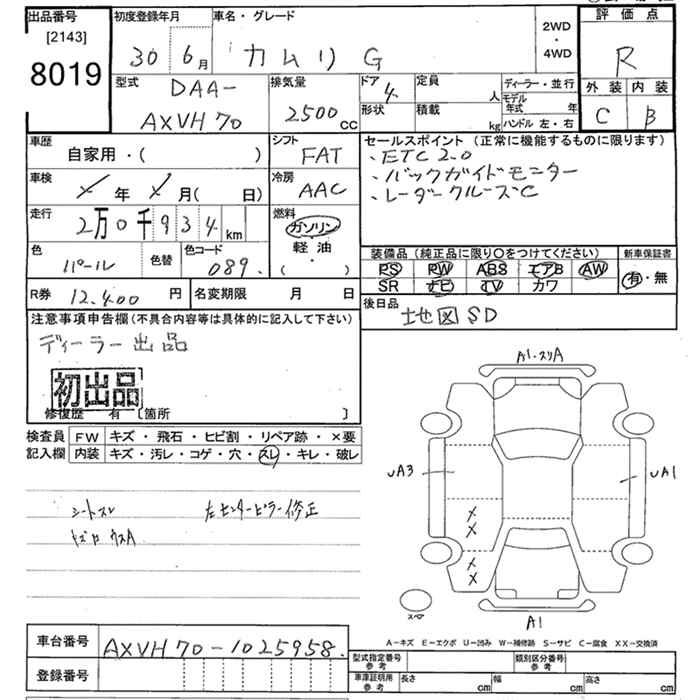 出品番号 初度登録年月 車名・グレード 評価点
[2143]
8019 30 6月 カムリ G 2WD ・ 4WD R
型式 DAA- AXVH70 排気量 2500 CC ドア 4 定員 人 ディーラー・並行 外装 内装
形状 積載 kg モデル年式 年 ハンドル 左・右 C B
車歴 自家用・( ) シフト FAT セールスポイント (正常に機能するものに限ります)
・ETC2.0
車検 年 月( 日) 冷房 AAC ・バックガイドモニター
・レーダークルーズC
走行 2万0千934 km 燃料 ガソリン 軽油 ( ・ )
色 パール 色替 色コード 089. 装備品 (純正品に限り〇をつけてください) 新車保証書
PS PW ABS エアB AW 有・無
SR ナビ TV カワ
R券 12.400 円 名変期限 月 日 後日品 地図SD
注意事項申告欄(不具合内容等は具体的に記入して下さい)
ディーラー出品
初出品
修復歴 有 〔箇所 〕
検査員 FW キズ・飛石・ヒビ割・リペア跡・×要
記入欄 内装 キズ・汚レ・コゲ・穴・スレ・キレ・破レ
シートスレ 左センターピラー修正
A1・スリA
UA3
UA1
×
×
×
×
スペア
A1
A-キズ E-エクボ U-凹み W-補修跡 S-サビ C-腐食 XX-交換済
車台番号 AXVH70-1025958.
登録番号
型式指定番号 参考 類別区分番号 参考
車庫証明用 参考 長さ cm 幅 cm 高さ cm